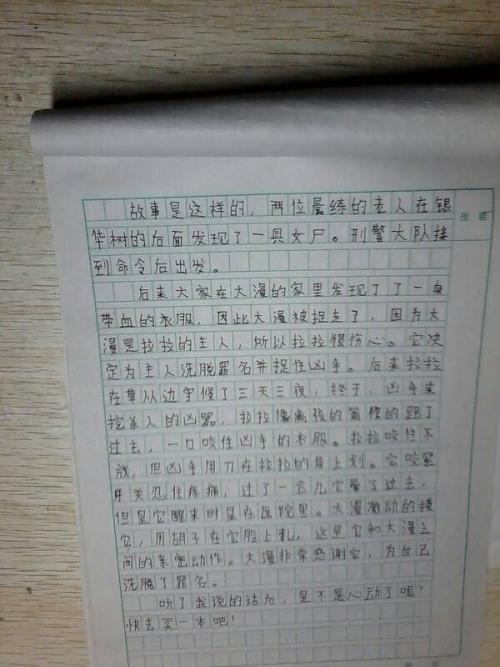 故事是这样的，两位晨练的老人在银
华树的后面发现了一具女尸。刑警大队接
到命令后出发。
后来大家在大漫的家里发现了了一身
带血的衣服，因此大漫被捉走了，因为大
漫是拉拉的主人，所以拉拉很伤心。它决
定为主人洗脱罪名并捉住凶手。后来拉拉
在草从边守候了三天三夜，终于，凶手来
挖杀人的凶器，拉拉像离弦的箭般的跑了
过去，一口咬住凶手的衣服。拉拉咬住不
放，但凶手用刀在拉拉的背上划。它咬紧
牙关忍住疼痛，过了一会儿它晕了过去，
但是它醒来时是在医院里。大漫激动的搂
它，用胡子在它脸上扎，这是它和大漫之
间的亲密动作。大漫非常感谢它，为自己
洗脱了罪名。
听了我说的话后，是不是心动了呢？
快去买一本吧！